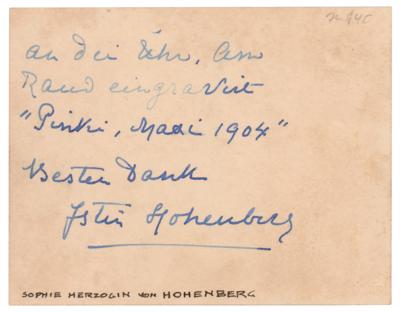 an die Uhr, am
Rand eingravirt
"Pinki, Maxi 1904"
Besten Dank
Fstin Hohenberg
SOPHIE HERZOGIN VON HOHENBERG